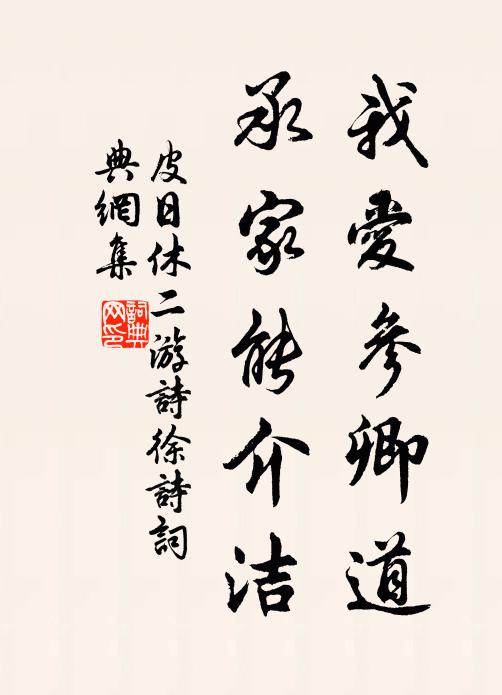 我愛參卿道
承家能介洁
皮日休二游詩徐詩詞
典網集
詞典网印